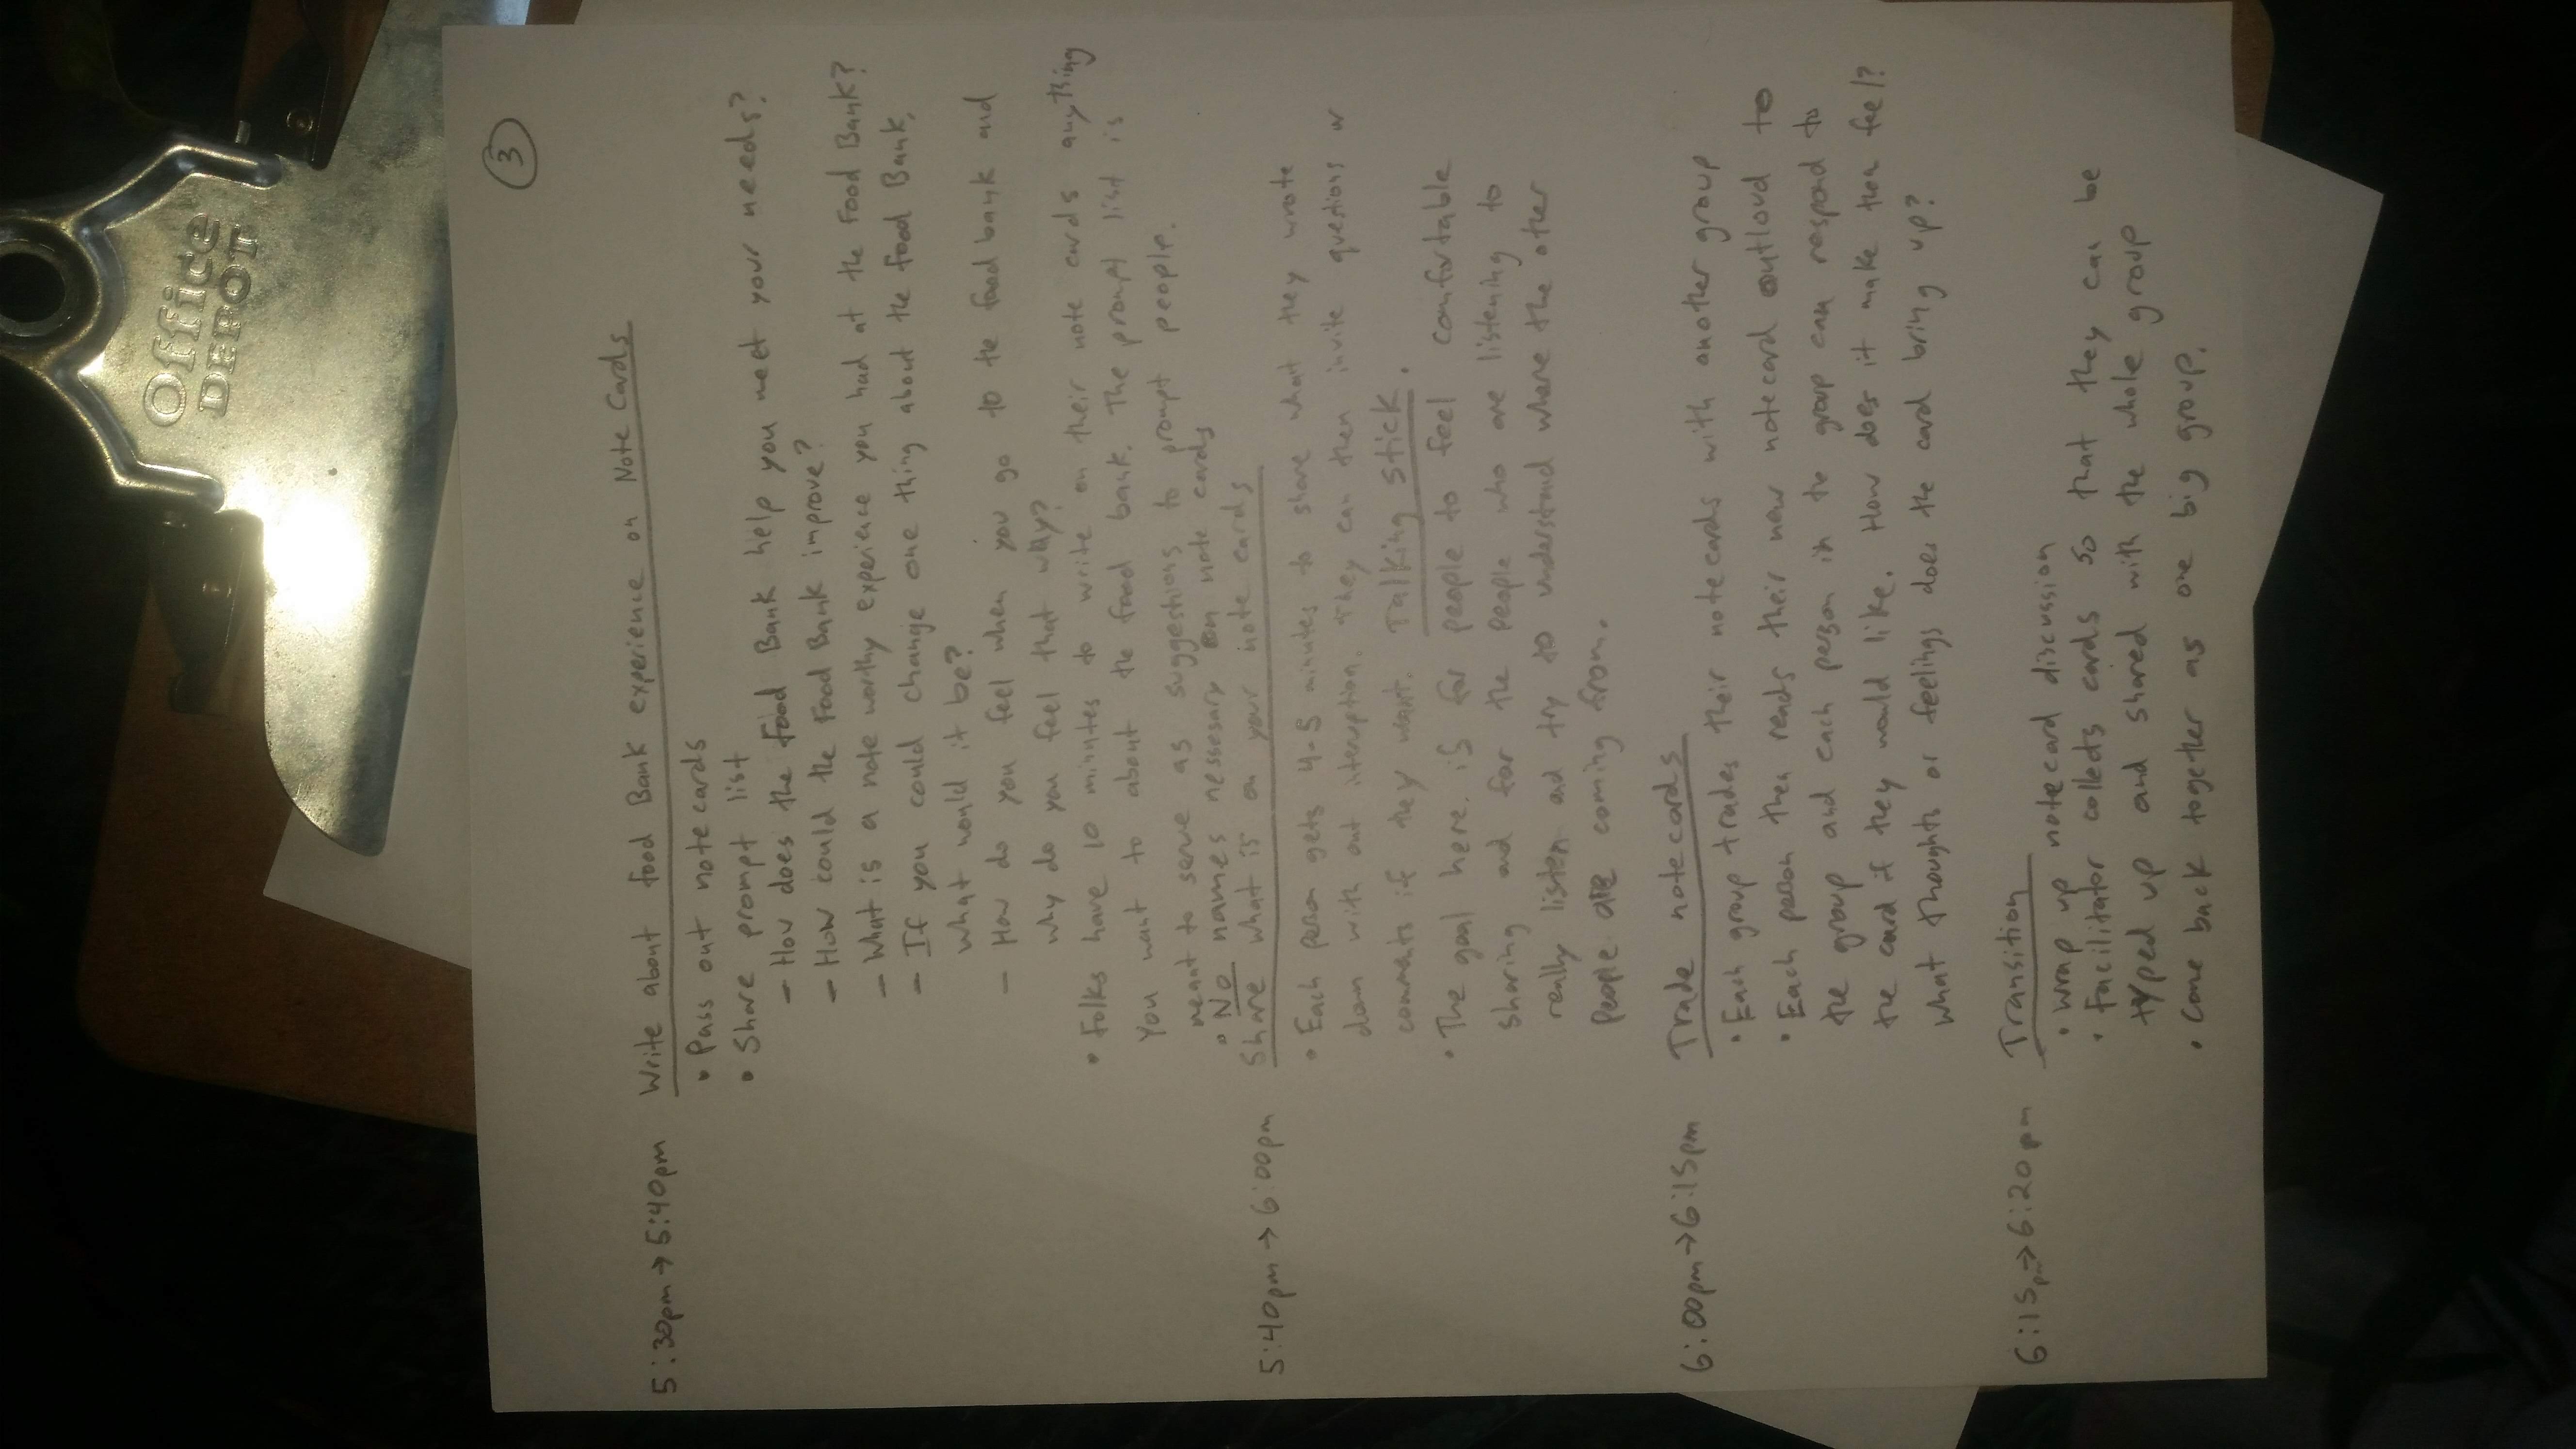 Office
DEPOT
3
5:30pm → 5:40pm Write about food Bank experience on Note Cards
• Pass out notecards
• Share prompt list
– How does the Food Bank help you meet your needs?
– How could the Food Bank improve?
– What is a note worthy experience you had at the Food Bank?
– If you could change one thing about the food Bank,
what would it be?
– How do you feel when you go to the food bank and
why do you feel that way?
• Folks have 10 minutes to write on their note cards anything
you want to about the food bank. The prompt list is
meant to serve as suggestions to prompt people.
• No names nessesary on note cards
5:40pm → 6:00pm Share what is on your note cards
• Each person gets 4-5 minutes to share what they wrote
down with out interuption. They can then invite questions or
comments if they want. Talking stick.
• The goal here is for people to feel comfortable
sharing and for the people who are listening to
really listen and try to understand where the other
people are coming from.
6:00pm → 6:15pm Trade notecards
• Each group trades their notecards with another group
• Each person then reads their new notecard outloud to
the group and each person in the group can respond to
the card if they would like. How does it make them feel?
What thoughts or feelings does the card bring up?
6:15pm → 6:20pm Transition
• Wrap up notecard discussion
• Facilitator collects cards so that they can be
typed up and shared with the whole group
• Come back together as one big group.